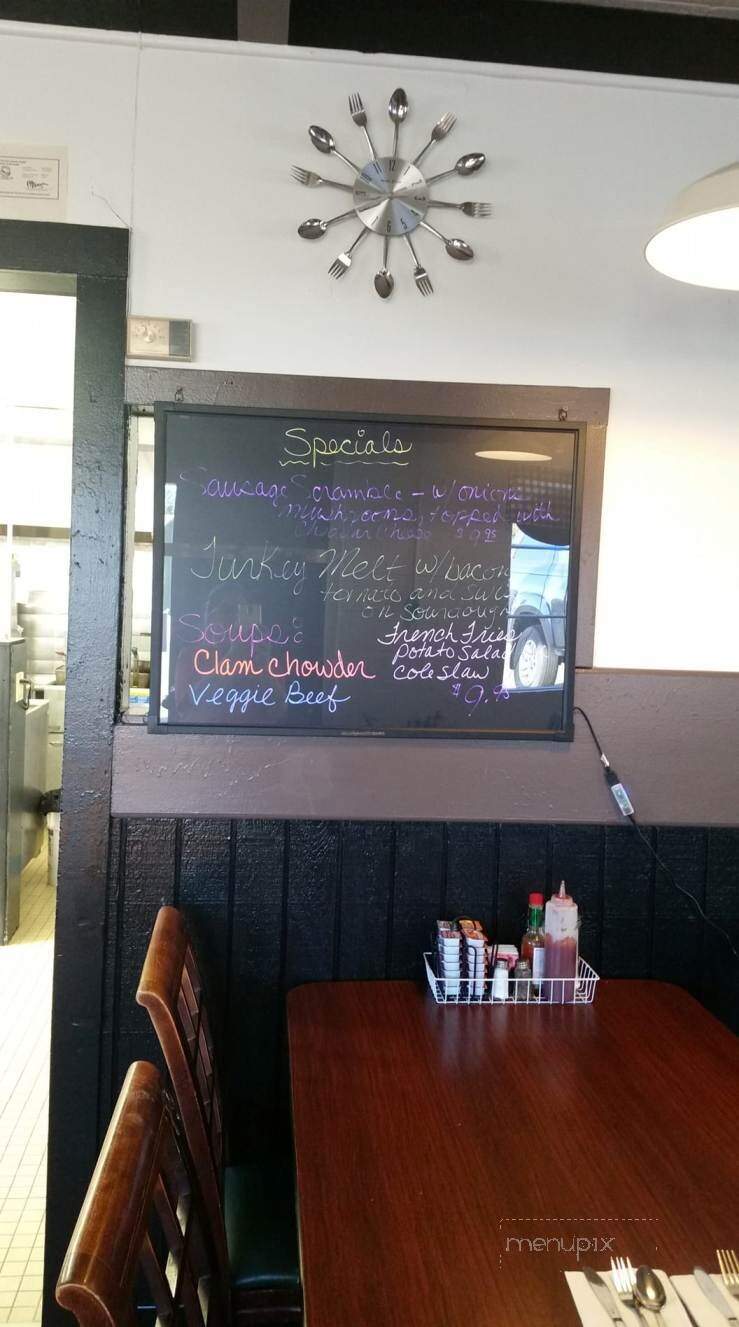 Specials
Sausage Scramble - w/ onions
mushrooms, topped with
cheese $9.95
Turkey Melt w/bacon
tomato and
on sourdough
Soups:
French Fries
Potato Salad
Clam chowder
coleslaw
Veggie Beef
$9.95
menupix